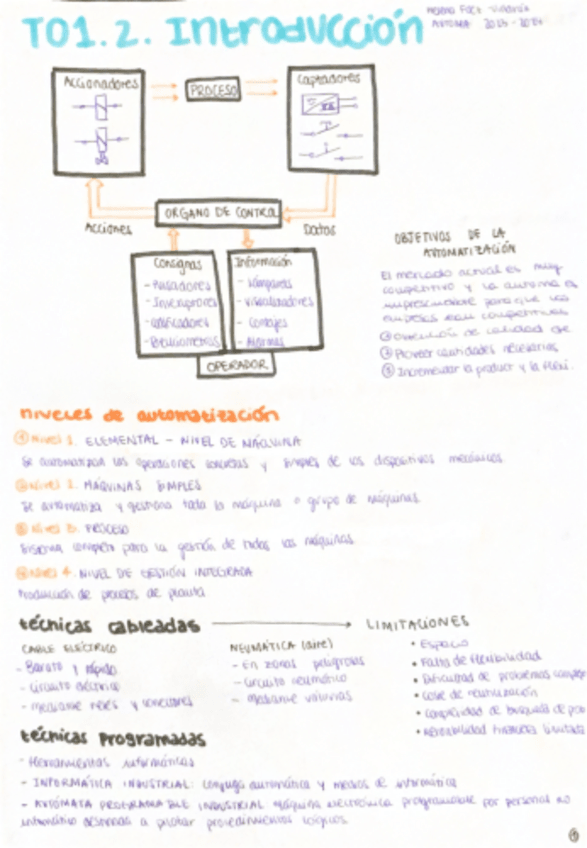 T01.2. Introducción
2023-2024
Accionadores
PROCESO
Captadores
ORGANO DE CONTROL
Acciones
Datos
Consignas
- Pulsadores
- Interruptores
- Potenciometros
Información
- Lámparas
- Visualizadores
- Contajes
- Alarmas
OPERADOR
OBJETIVOS DE LA
AUTOMATIZACIÓN
El mercado actual es muy
competitivo y la automa es
imprescindible para que las
empresas sean competitivas
calidad
② Proveer cantidades necesarias
③ Incrementar la product y la flexi.
niveles de automatización
① Nivel 1. ELEMENTAL - NIVEL DE MÁQUINA
Se automatizan las operaciones concretas y simples de los dispositivos mecánicos
Nivel 2. MÁQUINAS SIMPLES
Se automatiza y gestiona toda la máquina o grupo de máquinas
③ Nivel 3. PROCESO
Sistema completo para la gestión de todas las máquinas
Nivel 4. NIVEL DE GESTIÓN INTEGRADA
Producción de procesos de planta
técnicas cableadas
LIMITACIONES
CABLE ELÉCTRICO
- Barato y rápido
- Circuito eléctrico
- mediante relés y conectores
NEUMÁTICA (aire)
- En zonas peligrosas
- Circuito neumático
- mediante válvulas
• Espacio
• Falta de flexibilidad
• Dificultad de problemas complej
• Coste de reutilización
• Complejidad de busqueda de
limitada
técnicas programadas
- Herramientas informáticas
- INFORMÁTICA INDUSTRIAL: conjuga automática y medios de informática
- AUTÓMATA PROGRAMABLE INDUSTRIAL máquina electrónica programable por personal no
informático destinada a pilotar procedimientos lógicos.